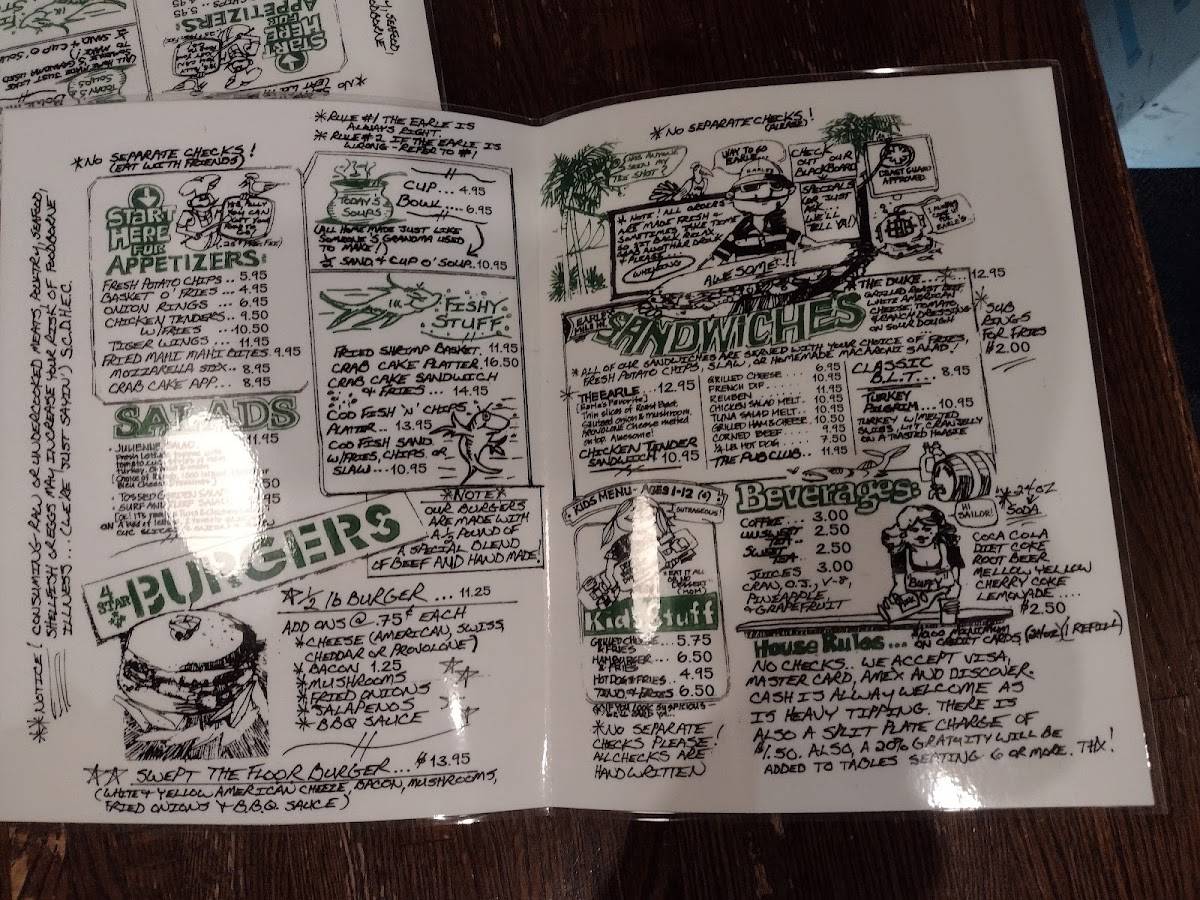 **NOTICE! CONSUMING RAW OR UNDERCOOKED MEATS, POULTRY, SEAFOOD,
SHELLFISH OR EGGS MAY INCREASE YOUR RISK OF FOODBORNE
ILLNESS... (WE'RE JUST SAYIN'!) S.C.D.H.E.C.
*NO SEPARATE CHECKS!
(EAT WITH FRIENDS)
START
HERE
FUR
APPETIZERS:
FRESH POTATO CHIPS .. 5.95
BASKET O' FRIES ... 4.95
ONION RINGS ... 6.95
CHICKEN TENDERS .. 9.50
W/FRIES ... 10.50
TIGER WINGS ... 11.95
FRIED MAHI MAHI BITES. 9.95
MOZZARELLA STIX .. 8.95
CRAB CAKE APP.... 8.95
SALADS
JULIENNE SALAD
11.95
TOSSED GARDEN SALAD
SURF AND TURF SALAD
*RULE #1 THE EARLE IS
ALWAYS RIGHT.
*RULE #2 IF THE EARLE IS
WRONG - REFER TO #1
TODAY'S
SOUPS
CUP... 4.95
BOWL... 6.95
(ALL HOME MADE JUST LIKE
SOMEONE'S GRANDMA USED
TO MAKE!
½ SAND & CUP O' SOUP. 10.95
FISHY
STUFF
FRIED SHRIMP BASKET. 11.95
CRAB CAKE PLATTER. 16.50
CRAB CAKE SANDWICH
& FRIES ... 14.95
COD FISH 'N' CHIPS
PLATTER .. 13.95
COD FISH SAND.
W/FRIES, CHIPS OR
SLAW... 10.95
*NOTE*
OUR BURGERS
ARE MADE WITH
A ½ POUND OF
A SPECIAL BLEND
OF BEEF AND HAND MADE.
4
STAR
BURGERS
*½ lb BURGER ... 11.25
ADD ONS @ .75¢ EACH
*CHEESE (AMERICAN, SWISS,
CHEDDAR OR PROVOLONE)
*BACON 1.25
*MUSHROOMS
*FRIED ONIONS
*JALAPENOS
*B.B.Q. SAUCE
** SWEPT THE FLOOR BURGER... $13.95
(WHITE & YELLOW AMERICAN CHEEZE, BACON, MUSHROOMS,
FRIED ONIONS & B.B.Q. SAUCE)
*NO SEPARATE CHECKS!
(PLEASE)
HAS ANYONE
SEEN MY
TEE SHOT?
WAY TO GO
EARLE...
EARLE
CHECK
OUT OUR
BLACKBOARD
SPECIALS
OR JUST
ASK
WE'LL
TELL YA!
COAST GUARD
APPROVED
* NOTE! ALL ORDERS
ARE MADE FRESH &
SOMETIMES TAKE TIME
SO SIT BACK, RELAX,
AND HAVE ANOTHER DRINK
PLEASE...
AWESOME!!
SANDWICHES
*ALL OF OUR SANDWICHES ARE SERVED WITH YOUR CHOICE OF FRIES,
FRESH POTATO CHIPS, SLAW, OR HOMEMADE MACARONI SALAD!
THE EARLE ... 12.95
(Earle's Favorite)
Thin slices of Roast Beef,
Sauteed onion & mushroom,
PROVOLONE Cheese melted
on top. Awesome!
CHICKEN TENDER
SANDWICH 10.95
GRILLED CHEESE ... 6.95
FRENCH DIP ... 10.95
REUBEN ... 11.95
CHICKEN SALAD MELT.. 10.95
TUNA SALAD MELT.. 10.95
GRILLED HAM & CHEESE. 10.50
CORNED BEEF ... 9.95
¼ LB. HOT DOG.. 7.50
THE PUB CLUB.. 11.95
THE DUKE... 12.95
GRILLED ROAST BEEF,
WHITE AMERICAN
CHEESE, TOMATO,
& RANCH DRESSING
ON SOUR DOUGH
CLASSIC
B.L.T... 8.95
TURKEY
PILGRIM.. 10.95
TURKEY W/MELTED
SWISS, LIT. CRANJELLY
ON A TOASTED HOAGIE
*SUB
RINGS
FOR FRIES
$2.00
KIDS MENU - AGES 1-12
OUTRAGEOUS!
Kid Stuff
GRILLED CHEESE .... 5.75
& FRIES
HAMBURGER... 6.50
& FRIES
HOT DOG & FRIES... 4.95
TEND. & FRIES 6.50
(IF YOU LOOK SUSPICIOUS -
WE'LL CARD YA...
*NO SEPARATE
CHECKS PLEASE!
ALL CHECKS ARE
HANDWRITTEN
Beverages:
COFFEE ... 3.00
UNSWEET
TEA .. 2.50
SWEET
TEA... 2.50
JUICES ... 3.00
CRAN, O.J., V-8,
PINEAPPLE,
& GRAPEFRUIT
HI
SAILOR!
24 OZ
SODA
COCA COLA
DIET COKE
ROOT BEER
MELLOW YELLOW
CHERRY COKE
LEMONADE ....
$2.50
(24oz) (1 REFILL)
House Rules... $10.00 MINIMUM
ON CREDIT CARDS
NO CHECKS.. WE ACCEPT VISA,
MASTER CARD, AMEX AND DISCOVER.
CASH IS ALLWAY WELCOME AS
IS HEAVY TIPPING. THERE IS
ALSO A SPLIT PLATE CHARGE OF
$1.50. ALSO, A 20% GRATUITY WILL BE
ADDED TO TABLES SEATING 6 OR MORE. THX!